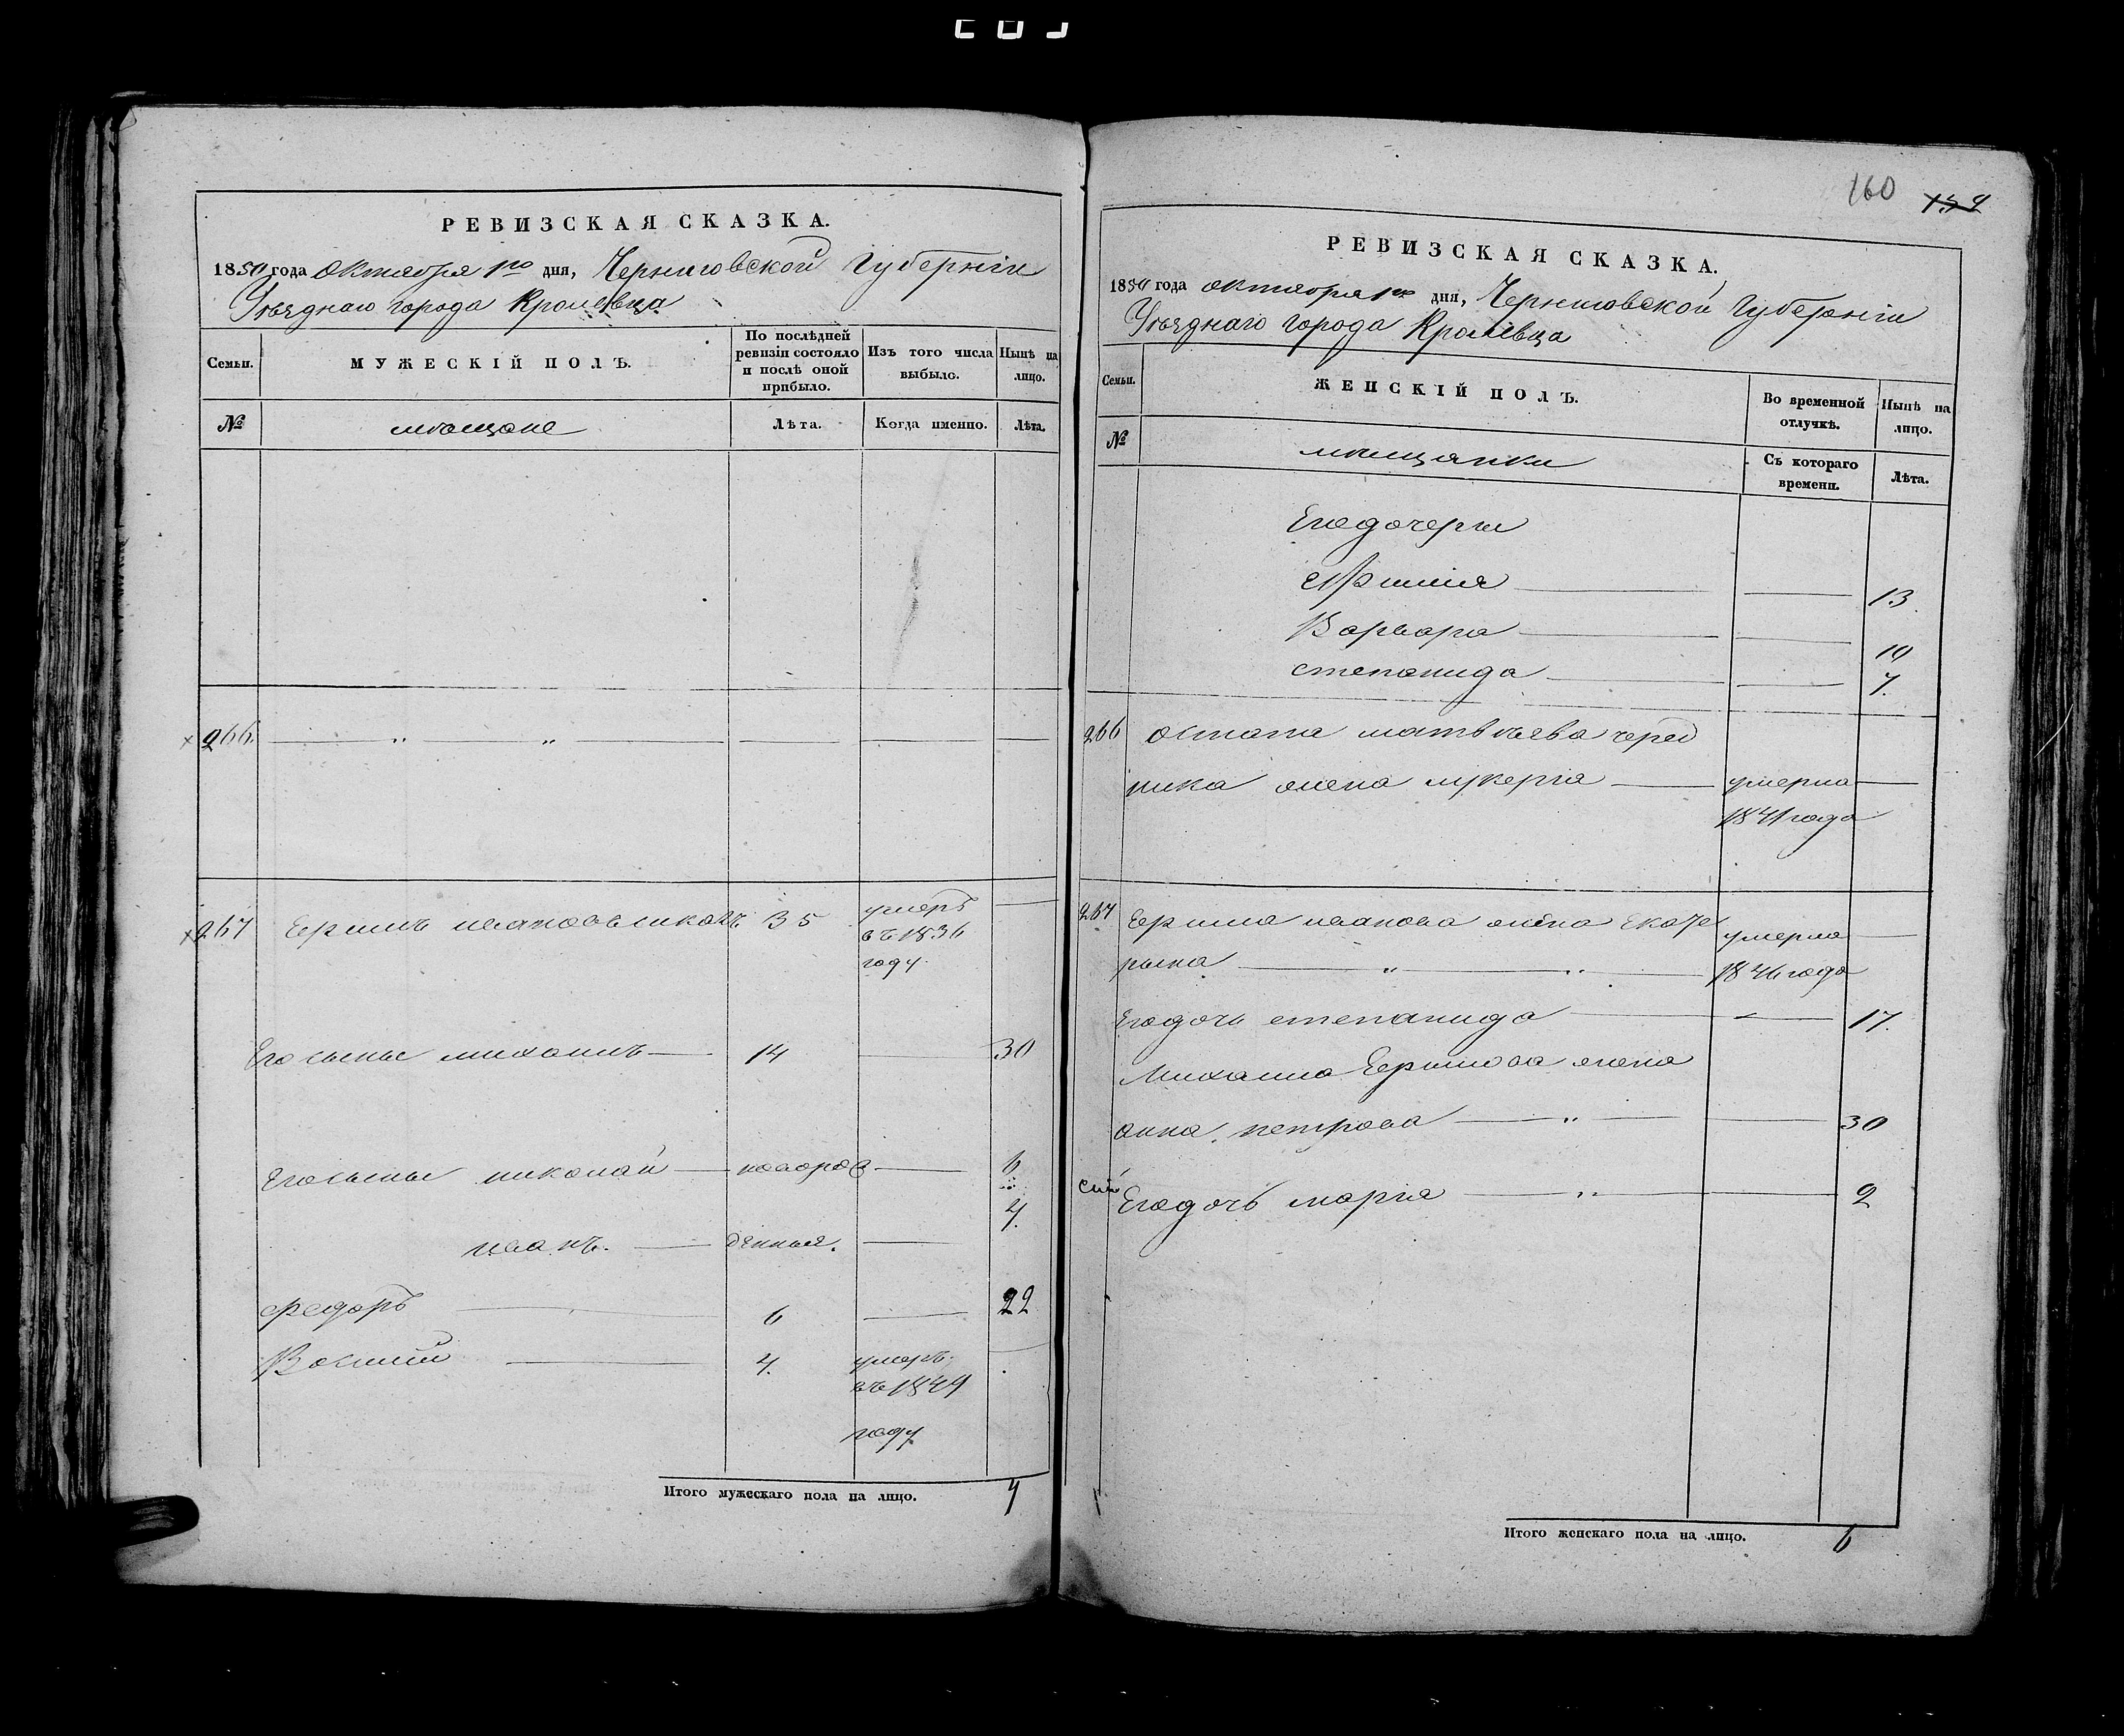 РЕВИЗСКАЯ СКАЗКА.
1850 года Октября 1го дня, Черниговской Губерніи
Уезднаго города Кролевца
Семьи.
МУЖЕСКІЙ ПОЛЪ.
По послѣдней ревизіи состояло и послѣ оной прибыло.
Изъ того числа выбыло.
Нынѣ на лицо.
№
мещане
Лѣта.
Когда именно.
Лѣта.
266.
267 Ермилъ 35 умеръ
въ 1836
году.
Его сынъ михаилъ 14 30
Его сыны николай новорож 6
7.
иванъ. денныя.
федоръ 6 22
Василий 7. умеръ.
въ 1849
году
Итого мужескаго пола на лицо. 4
160 159
РЕВИЗСКАЯ СКАЗКА.
1850 года октября 1го дня, Черниговской Губерніи
Уезднаго города Кролевца
Семьи.
ЖЕНСКІЙ ПОЛЪ.
Во временной отлучкѣ.
Нынѣ на лицо.
№
мещанки
Съ котораго времени.
Лѣта.
Его дочери
13.
Варвара 10
степанида 7.
266 матвѣева черед
ника жена лукерія умерла
1841 года
267 Ермила иванова жена Екате
рына умерла
1846 года
Его дочь степанида 17.
Михаила Ермилова жена
анна петрова 30
Его дочь марія 2
Итого женскаго пола на лицо. 6